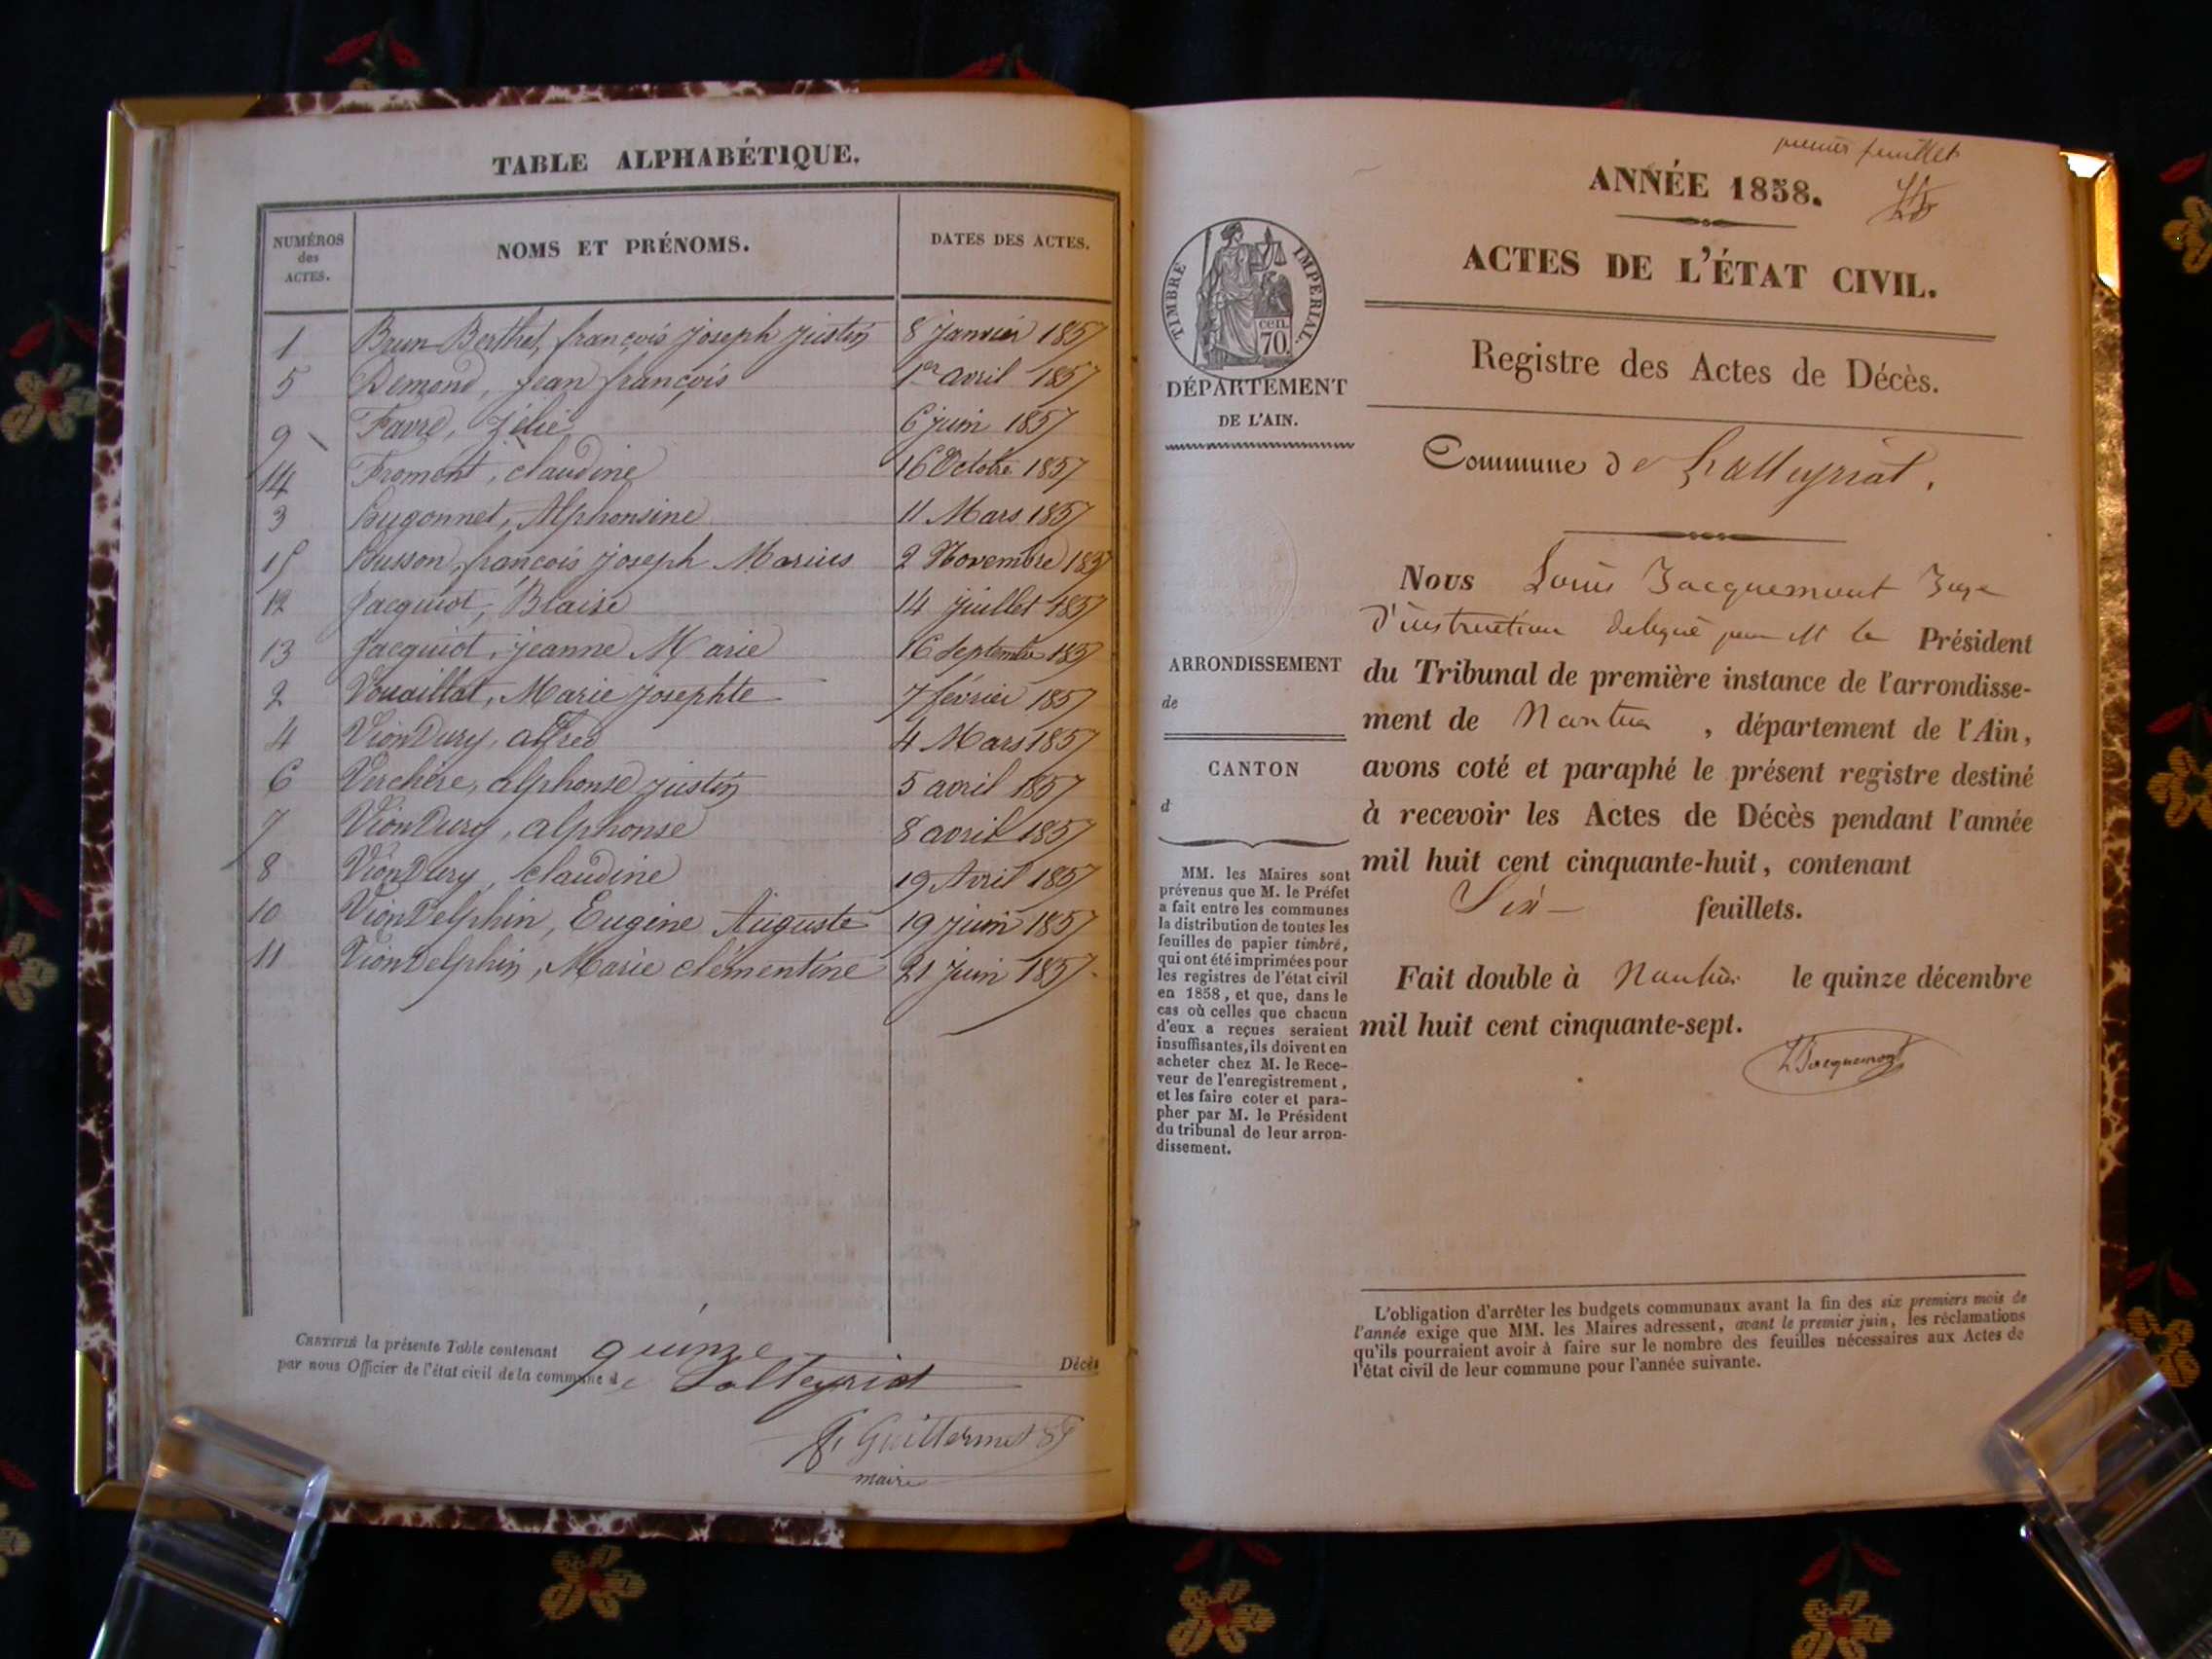 TABLE ALPHABÉTIQUE.
NUMÉROS des ACTES. NOMS ET PRÉNOMS. DATES DES ACTES.
1 Brun Berthet, françois joseph justin 8 janvier 1857
5 Demond, jean françois 1er avril 1857
9 Favre, Zélie 6 juin 1857
14 Froment, claudine 16 Octobre 1857
3 Gugonnet, Alphonsine 11 Mars 1857
15 Husson, françois joseph Marius 2 Novembre 1857
12 Jacquiot, Blaise 14 juillet 1857
13 Jacquiot, jeanne Marie 16 Septembre 1857
2 Vouaillat, Marie josephte 7 février 1857
4 Vion Dury, alfred 4 Mars 1857
6 Verchère, alphonse justin 5 avril 1857
7 Vion Dury, alphonse 8 avril 1857
8 Vion Dury, claudine 19 Avril 1857
10 Vion Delphin, Eugène Auguste 19 juin 1857
11 Vion Delphin, Marie clémentine 21 juin 1857
CERTIFIÉ la présente Table contenant quinze Décès
par nous Officier de l'état civil de la commune de Lalleyriat
Guillermet
maire
premier feuillet
ANNÉE 1858.
ACTES DE L'ÉTAT CIVIL.
Registre des Actes de Décès.
Commune de Lalleyriat.
TIMBRE IMPERIAL.
cen.
70.
DÉPARTEMENT
DE L'AIN.
ARRONDISSEMENT
de
CANTON
d
MM. les Maires sont
prévenus que M. le Préfet
a fait entre les communes
la distribution de toutes les
feuilles de papier timbré,
qui ont été imprimées pour
les registres de l'état civil
en 1858, et que, dans le
cas où celles que chacun
d'eux a reçues seraient
insuffisantes, ils doivent en
acheter chez M. le Rece-
veur de l'enregistrement,
et les faire coter et para-
pher par M. le Président
du tribunal de leur arron-
dissement.
Nous Louis Jacquemont Juge
d'instruction délégué par M le Président
du Tribunal de première instance de l'arrondisse-
ment de Nantua, département de l'Ain,
avons coté et paraphé le présent registre destiné
à recevoir les Actes de Décès pendant l'année
mil huit cent cinquante-huit, contenant
Six feuillets.
Fait double à Nantua le quinze décembre
mil huit cent cinquante-sept.
L Jacquemont
L'obligation d'arrêter les budgets communaux avant la fin des six premiers mois de
l'année exige que MM. les Maires adressent, avant le premier juin, les réclamations
qu'ils pourraient avoir à faire sur le nombre des feuilles nécessaires aux Actes de
l'état civil de leur commune pour l'année suivante.